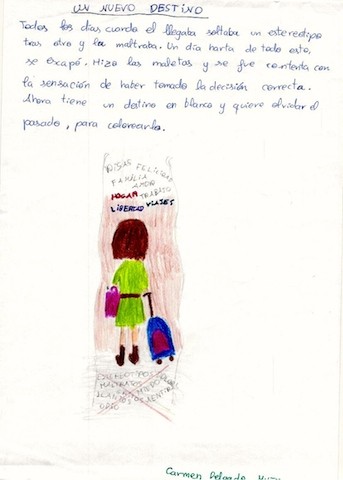 UN NUEVO DESTINO
Todos los días cuando el llegaba soltaba un estereotipo
tras otro y la maltraba. Un día harta de todo esto,
se escapó. Hizo las maletas y se fue contenta con
la sensación de haber tomado la decisión correcta.
Ahora tiene un destino en blanco y quiere olvidar el
pasado, para colorearlo.
RISAS FELICIDAD
FAMILIA
AMOR
HOGAR TRABAJO
LIBERTAD VIAJES
ESTEREOTIPOS
MALTRATO MIEDO
GRITOS MENTIRAS
ODIO
Carmen Delgado